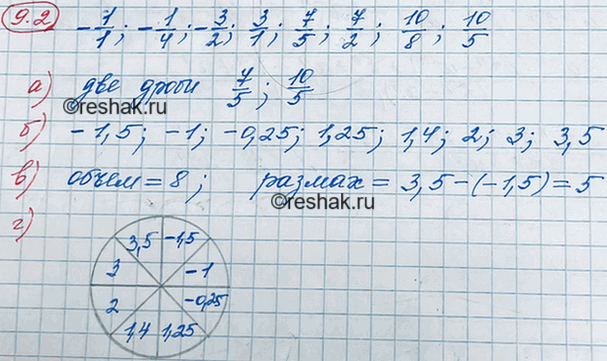 9.2 -1/1; -1/4; -3/2; 3/1; 7/5; 7/2; 10/8; 10/5
а) две дроби 7/5; 10/5
©reshak.ru
б) -1,5; -1; -0,25; 1,25; 1,4; 2; 3; 3,5
в) объем = 8; размах = 3,5-(-1,5) = 5
©reshak.ru
г)
3,5 -1,5
3 -1
2 -0,25
1,4 1,25